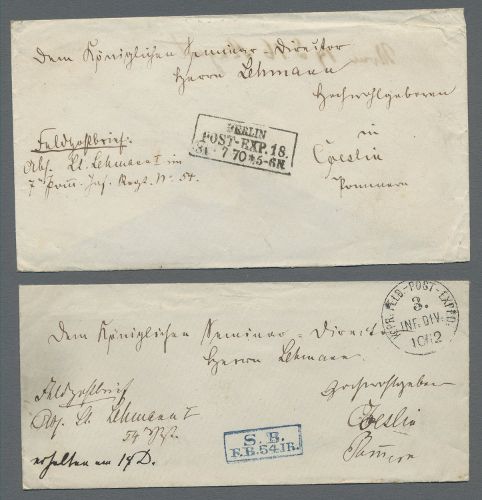 Dem Königlichen Seminar-Director
Herrn Lehmann
Hochwohlgeboren
in
Coeslin
Pommern
Feldpostbrief.
Abs. Lt. Lehmann I im
7 Pom. Inf. Regt. No 54.
BERLIN
POST-EXP. 18.
31 7 70 5-6N
Dem Königlichen Seminar-Director
Herrn Lehmann
Hochwohlgeboren
Coeslin
Feldpostbrief
Abs. Lt. Lehmann I
erhalten am 17 D.
S. B.
F.B. 54 IR.
K.PR. FELD-POST-EXPED.
3.
INF. DIV.
10 12